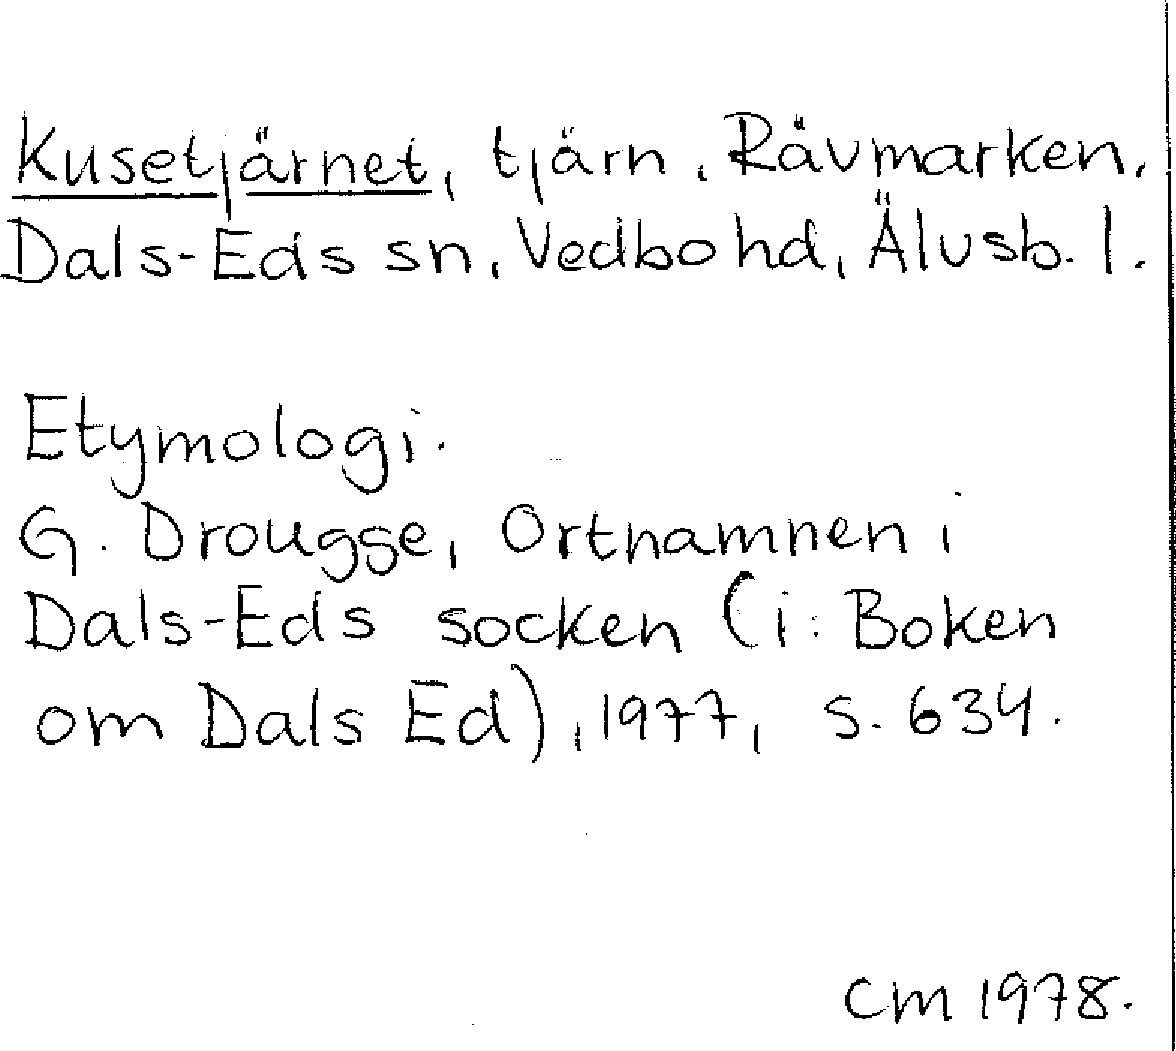 Kusetjärnet, tjärn, Rävmarken,
Dals-Eds sn, Vedbo hd, Älvsb. l.
Etymologi.
G. Drougge, Ortnamnen i
Dals-Eds socken (i: Boken
om Dals Ed), 1977, s. 634.
CM 1978.